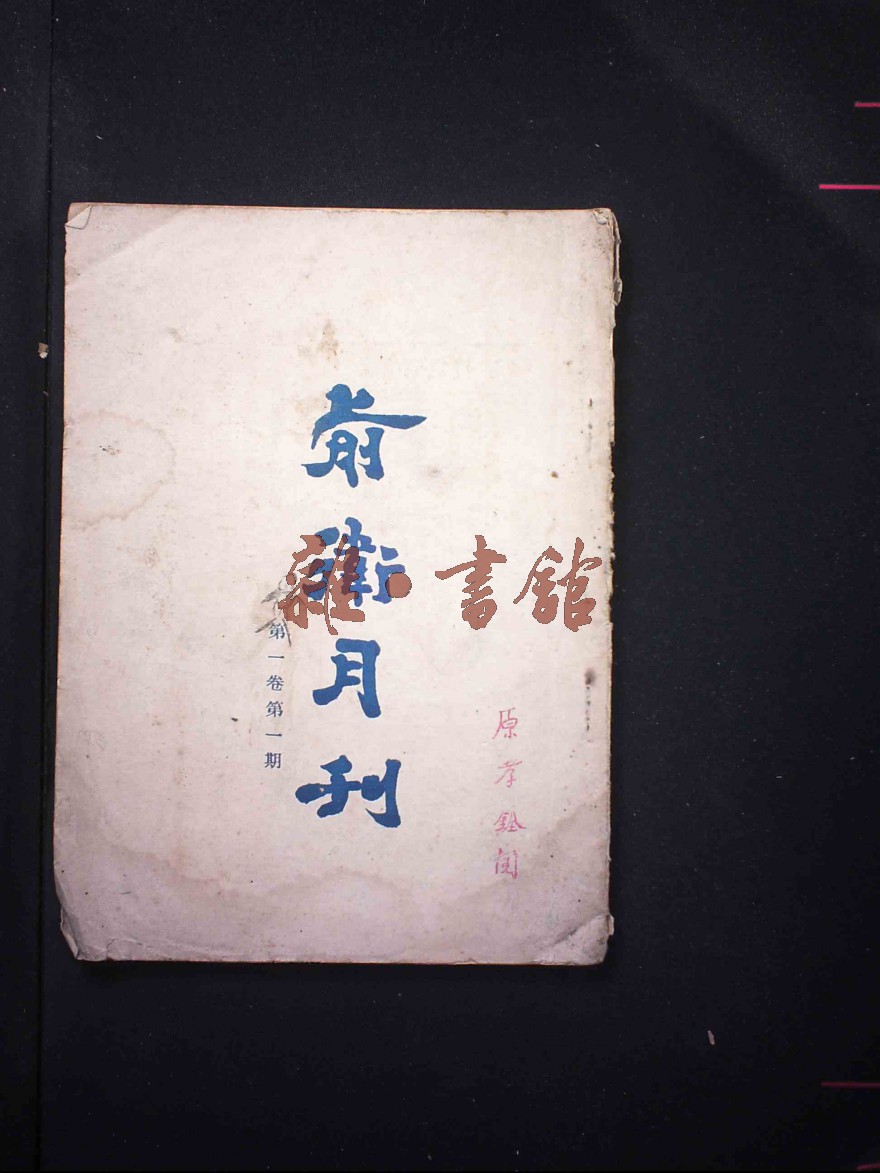 前衛月刊
第一卷第一期
原孝銓閱
雜·書館